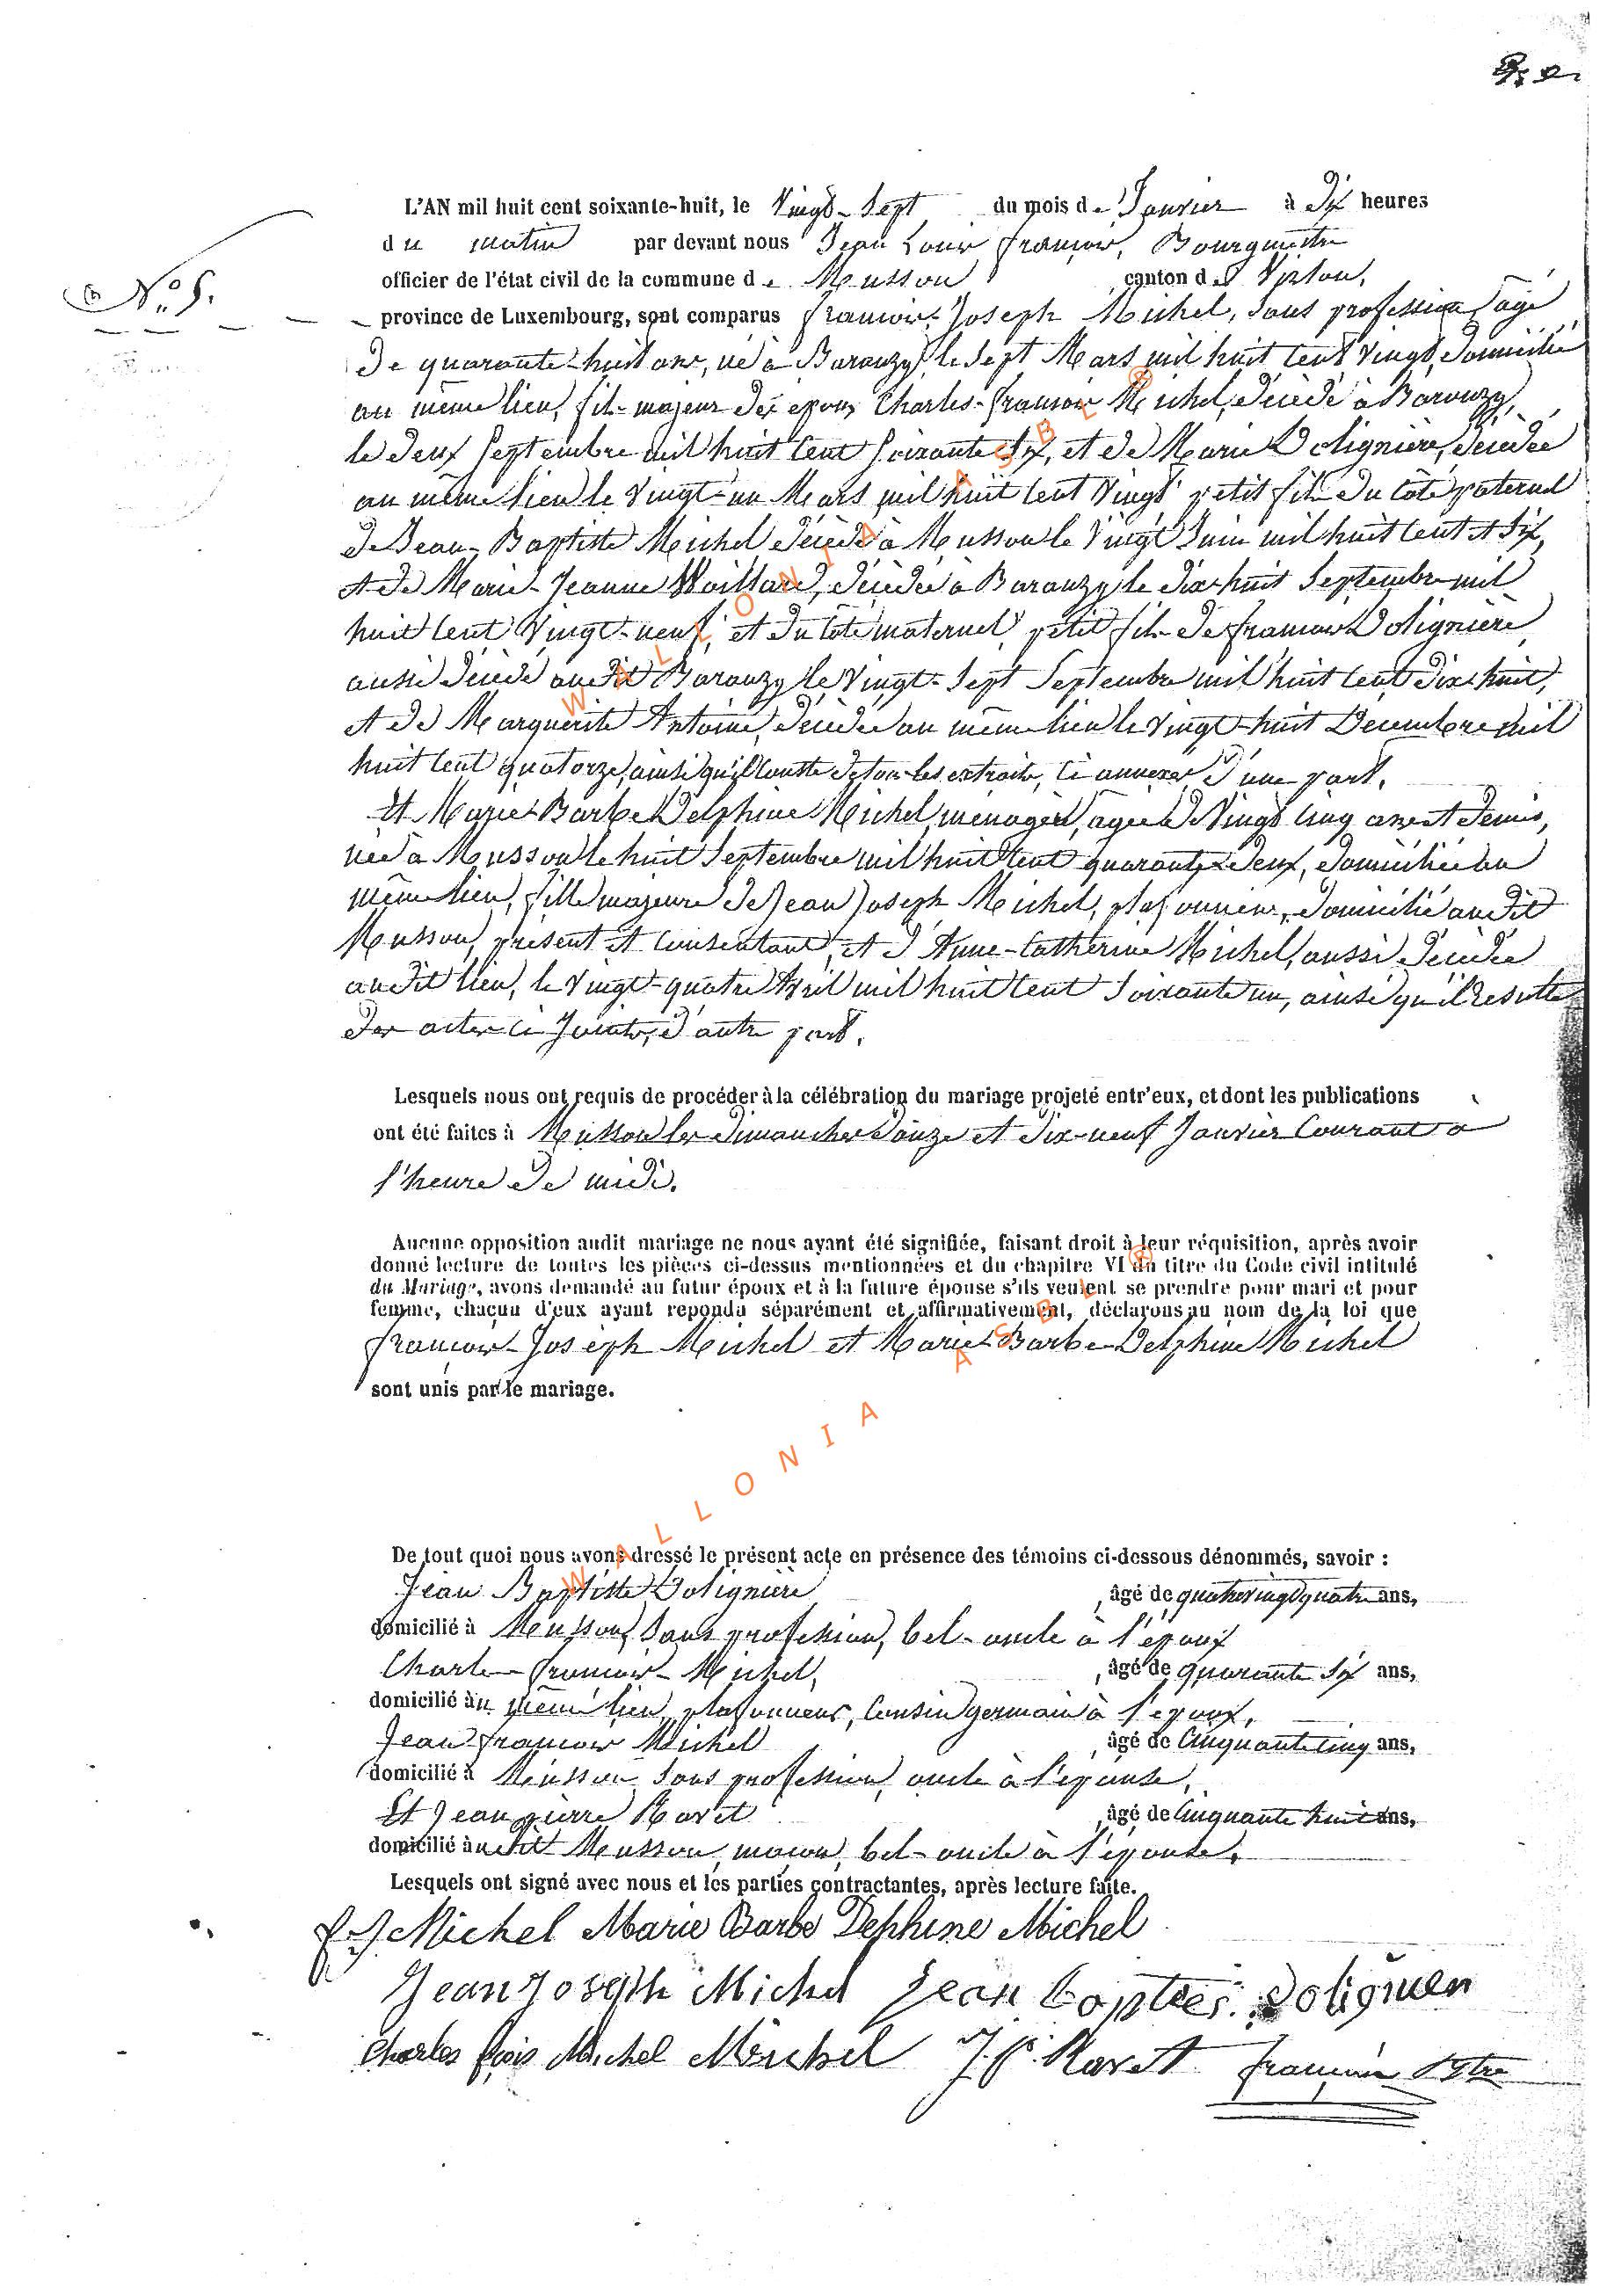 N.° 5.
L'AN mil huit cent soixante-huit, le Vingt-Sept du mois de Janvier à Dix heures
du matin par devant nous Jean Louis François, Bourgmestre
officier de l'état civil de la commune de Musson canton de Virton,
province de Luxembourg, sont comparus François-Joseph Michel, Sans profession, âgé
de quarante-huit ans, né à Baranzy, le Sept Mars mil huit cent vingt, domicilié
au même lieu, fils majeur des époux Charles-François Michel, décédé à Baranzy,
le deux Septembre mil huit cent soixante Six, et de Marie Dolignière, décédée
au même lieu le Vingt-un Mars mil huit cent Vingt petit fils du côté paternel
de Jean-Baptiste Michel décédé à Musson le Vingt Juin mil huit cent et Six,
et de Marie-Jeanne Woillard, décédée à Baranzy le dix-huit Septembre mil
huit cent Vingt-neuf, et du côté maternel, petit fils de François Dolignière,
aussi décédé audit Baranzy le Vingt-Sept Septembre mil huit cent dix-huit,
et de Marguerite Antoine, décédée au même lieu le vingt-huit Décembre mil
huit cent quatorze, ainsi qu'il conste de tous les extraits, ci annexés d'une part.
Et Marie-Barbe Delphine Michel, ménagère, âgée de Vingt cinq ans et demis,
née à Musson le huit Septembre mil huit cent quarante-deux, domiciliée au
même lieu, fille majeure de Jean Joseph Michel, plafonneur, domicilié audit
Musson, présent et consentant, et d'Anne-Catherine Michel, aussi décédée
audit lieu, le Vingt-quatre Avril mil huit cent soixante un, ainsi qu'il résulte
des actes ci joints, d'autre part.
Lesquels nous ont requis de procéder à la célébration du mariage projeté entr'eux, et dont les publications
ont été faites à Musson les dimanches douze et dix-neuf Janvier Courant à
l'heure de midi.
Aucune opposition audit mariage ne nous ayant été signifiée, faisant droit à leur réquisition, après avoir
donné lecture de toutes les pièces ci-dessus mentionnées et du chapitre VI du titre du Code civil intitulé
du Mariage, avons demandé au futur époux et à la future épouse s'ils veulent se prendre pour mari et pour
femme, chacun d'eux ayant repondu séparément et affirmativement, déclarons au nom de la loi que
François-Joseph Michel et Marie-Barbe-Delphine Michel
sont unis par le mariage.
De tout quoi nous avons dressé le présent acte en présence des témoins ci-dessous dénommés, savoir :
Jean Baptiste Dolignière, âgé de quatrevingt quatre ans,
domicilié à Musson, Sans profession, bel-oncle à l'époux
Charles-François-Michel, âgé de quarante Six ans,
domicilié au même lieu, plafonneur, Cousin germain à l'époux,
Jean-François Michel, âgé de Cinquante cinq ans,
domicilié à Musson, Sans profession, oncle à l'épouse,
Et Jean pierre Ravet, âgé de Cinquante huit ans,
domicilié audit Musson, maçon, bel-oncle à l'épouse.
Lesquels ont signé avec nous et les parties contractantes, après lecture faite.
f. J Michel Marie Barbe Delphine Michel
Jean Joseph Michel Jean
Charles fçois Michel Michel J. P. Ravet françois
WALLONIA ASBL ®
WALLONIA ASBL ®